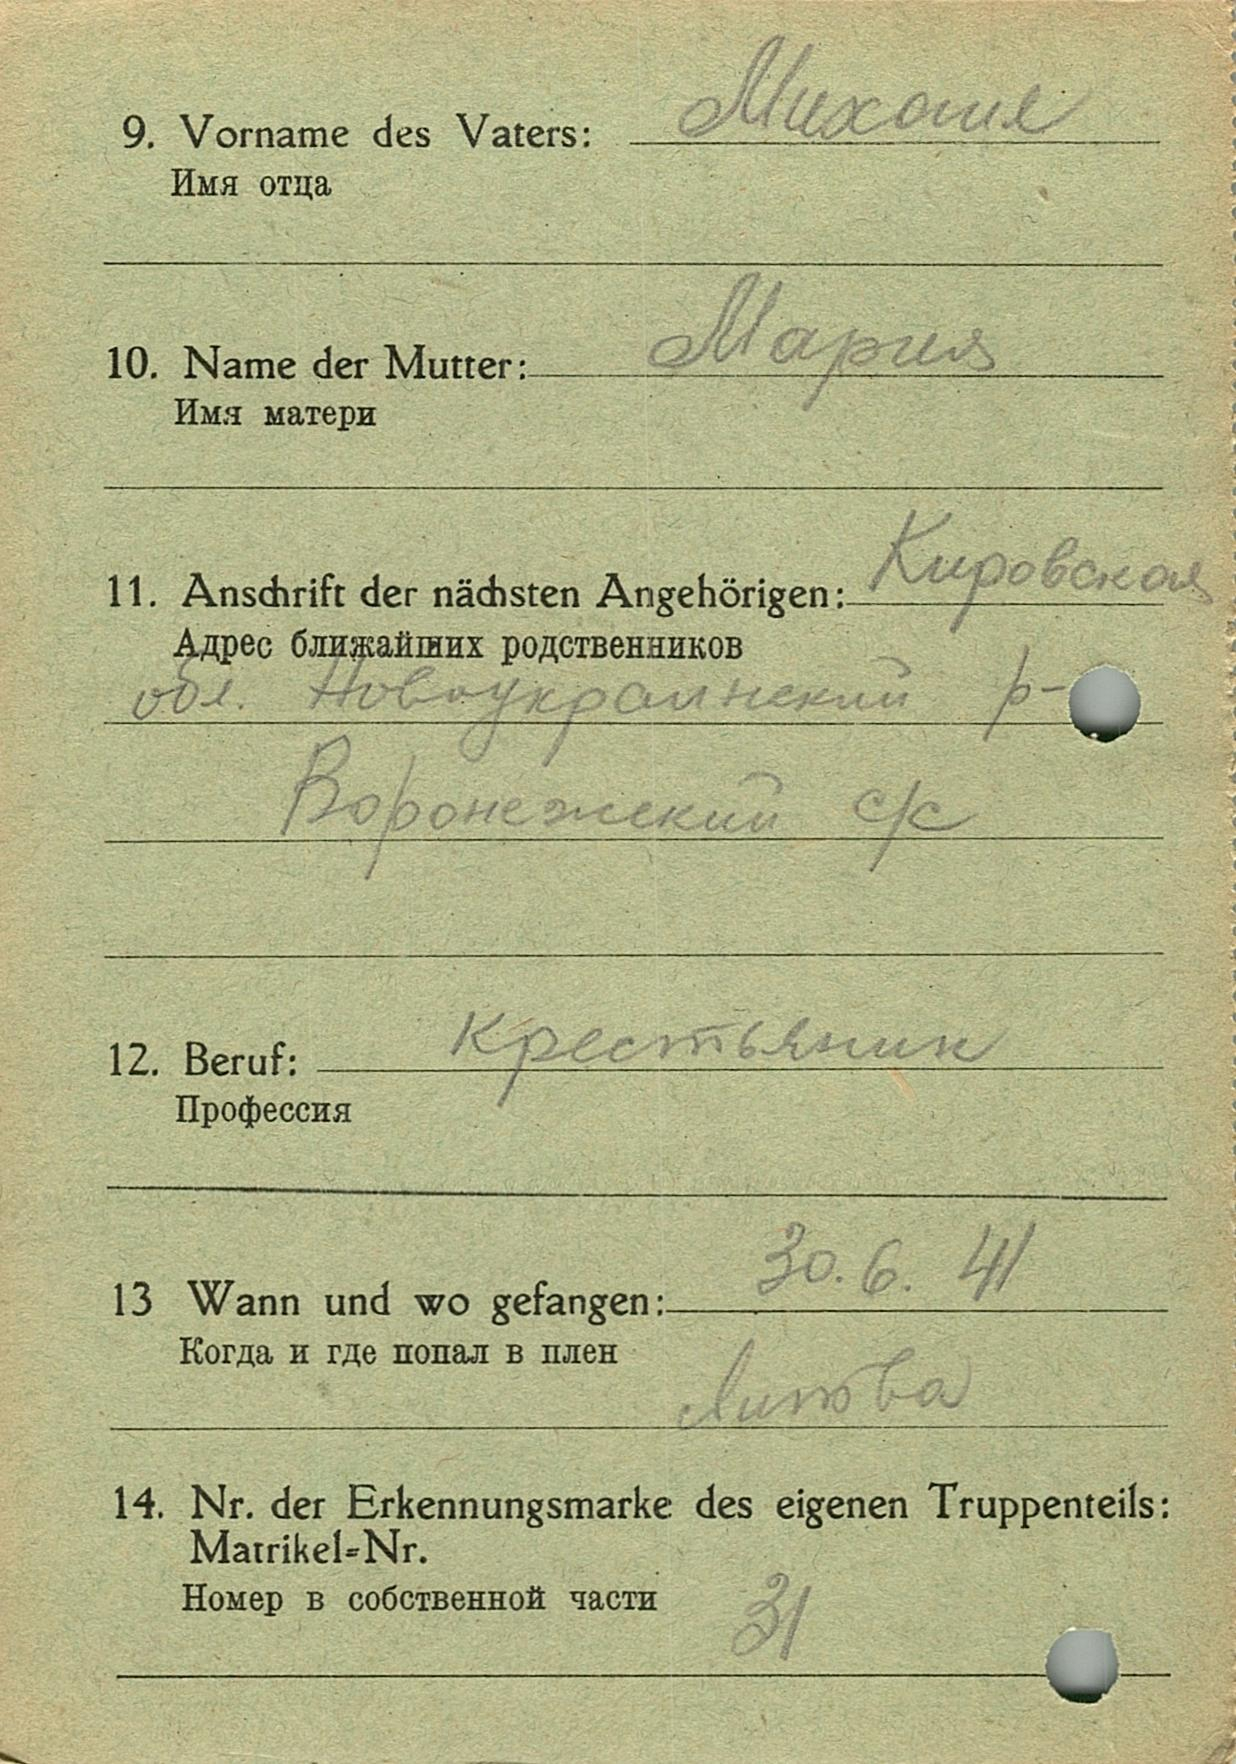 9. Vorname des Vaters: Михаил
Имя отца
10. Name der Mutter: Мария
Имя матери
11. Anschrift der nächsten Angehörigen: Кировская
Адрес ближайших родственников
обл. Новоукраинский р-
Воронежский с/с
12. Beruf: крестьянин
Профессия
13 Wann und wo gefangen: 30.6.41
Когда и где попал в плен
Литва
14. Nr. der Erkennungsmarke des eigenen Truppenteils:
Matrikel=Nr.
Номер в собственной части 31